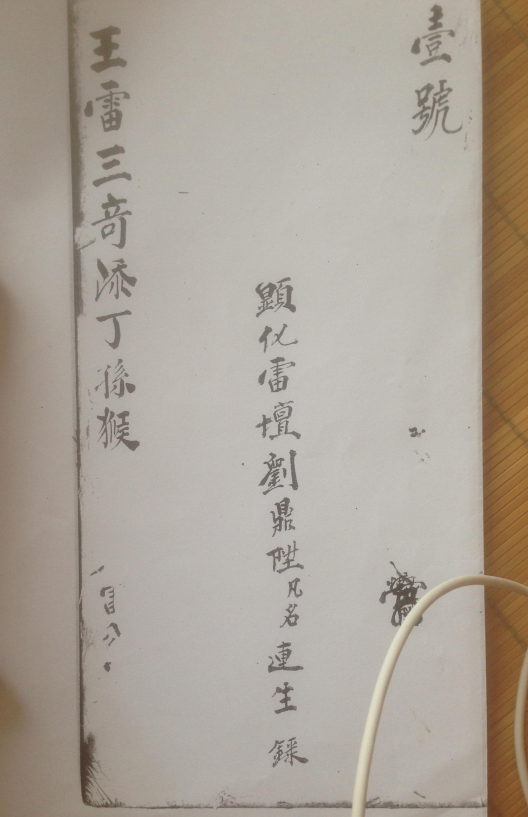 壹號
顯化雷壇劉鼎陞凡名連生錄
王雷三竒添丁孫猴